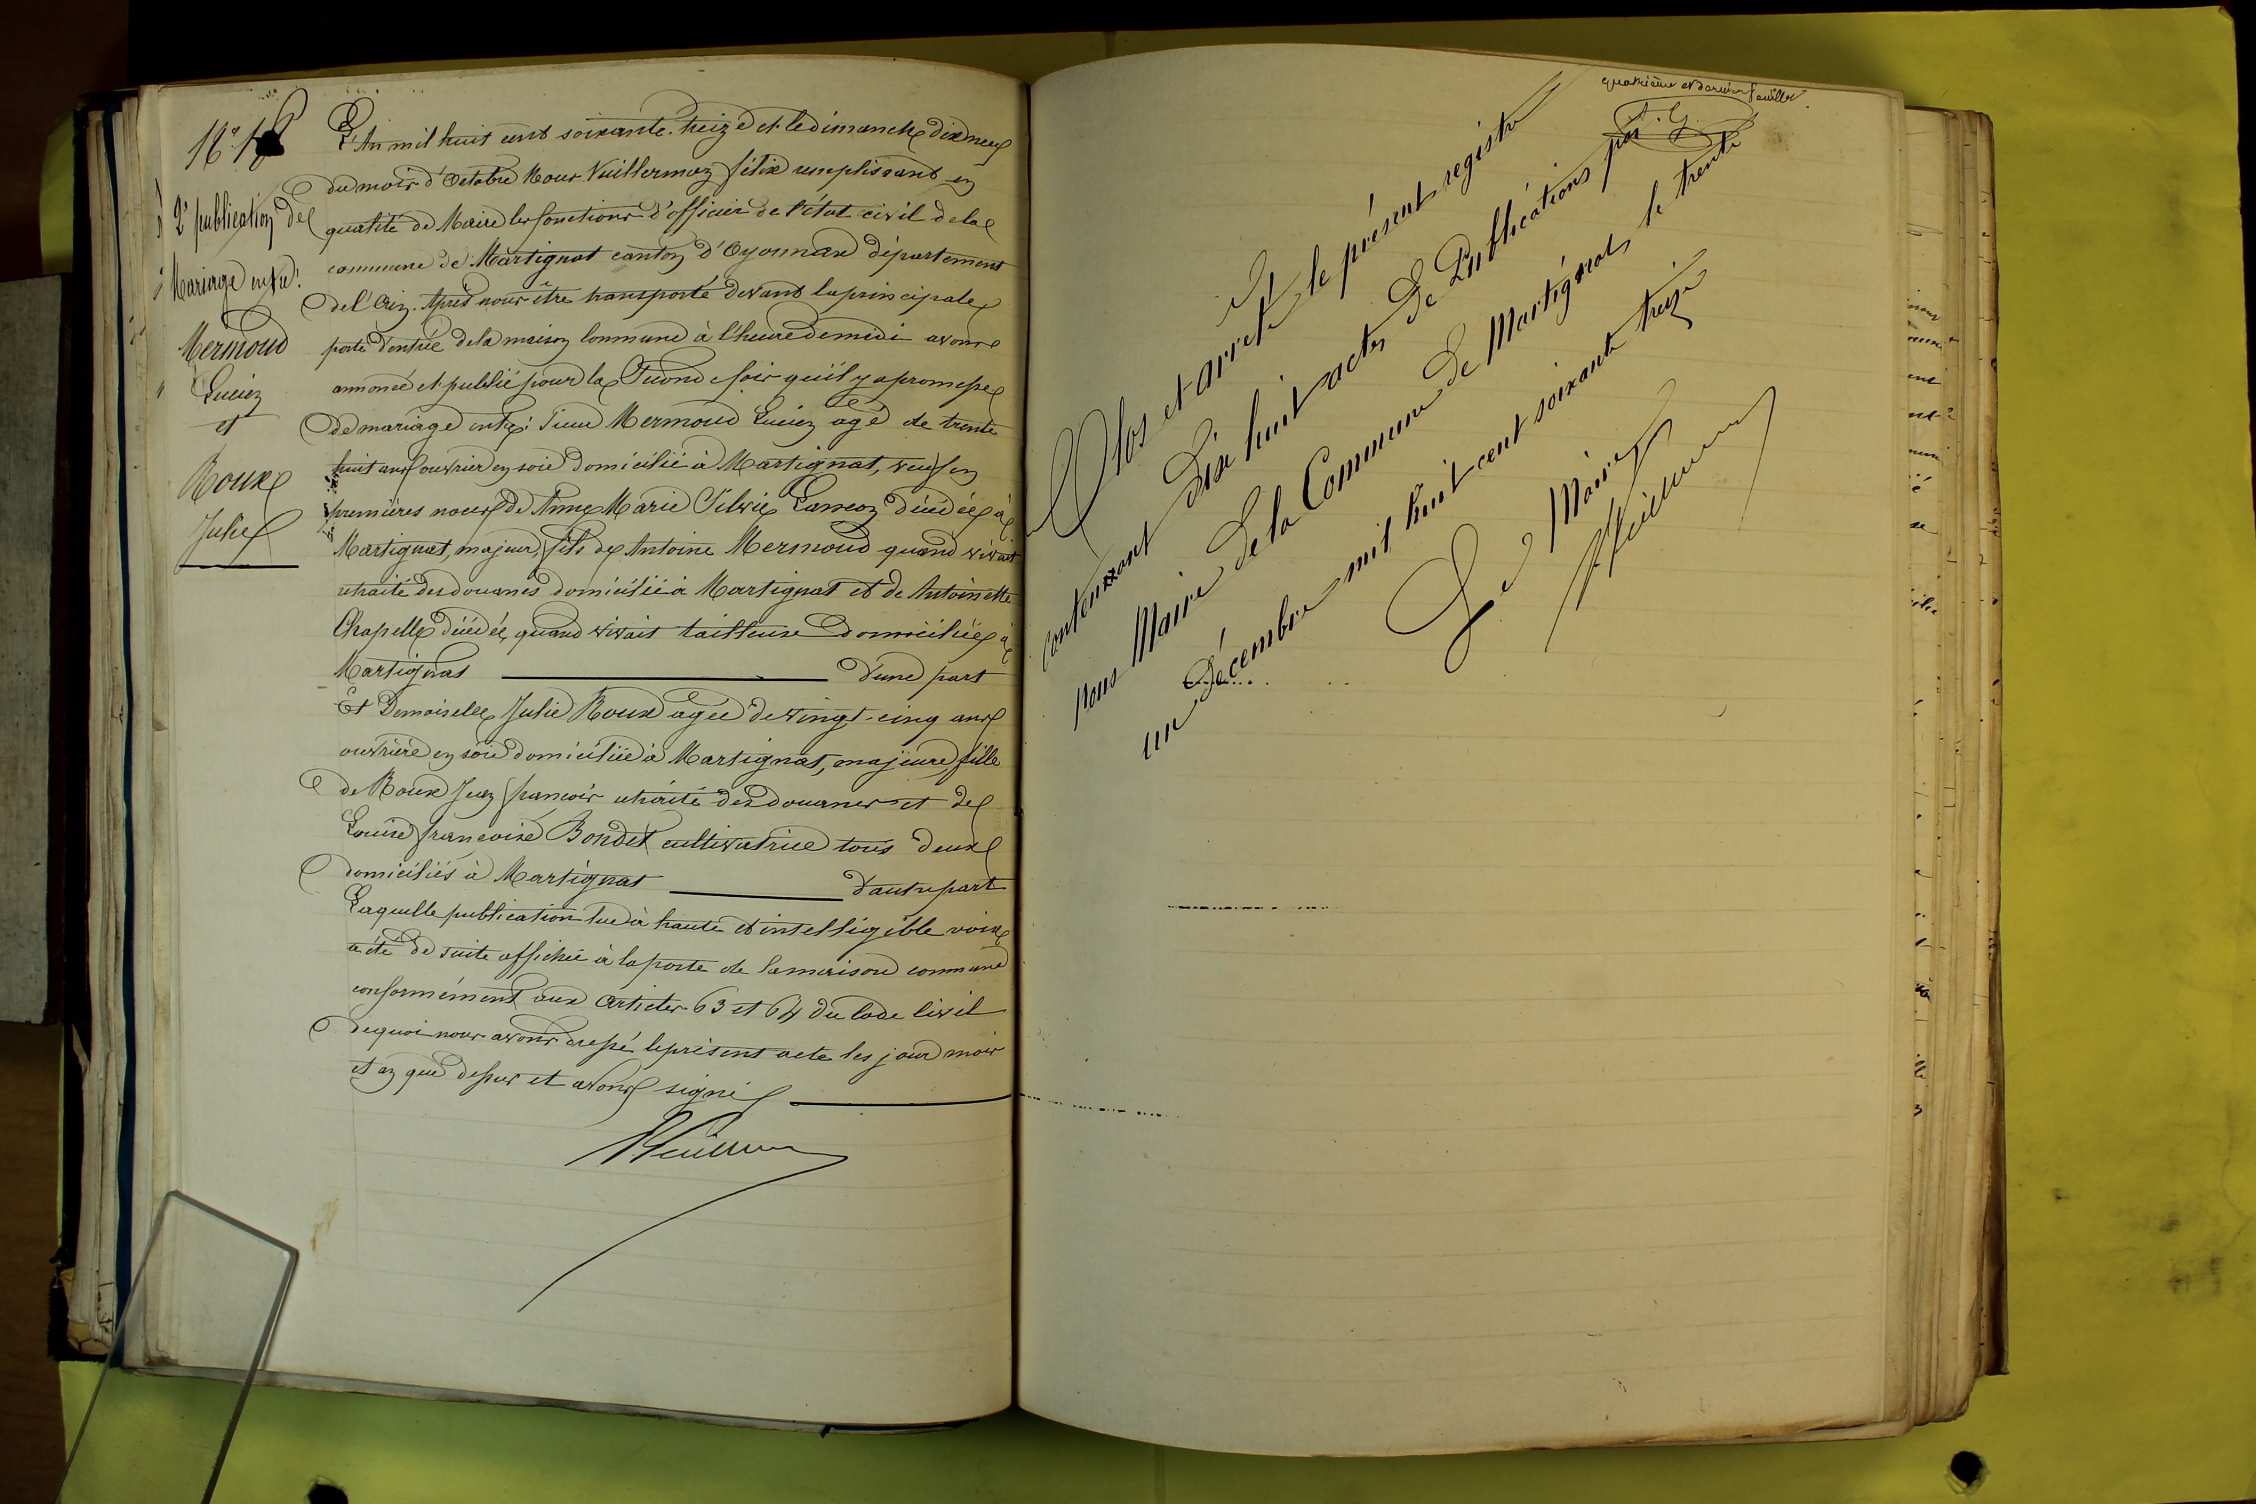 N° 18
2e publication de
Mariage entre:
Mermoud
Lucien
et
Roux
Julie
L'An mil huit cent soixante-treize et le dimanche dix neuf
du mois d'Octobre Nous Vuillermoz félix remplissant en
qualité de Maire les fonctions d'officier de l'état civil de la
commune de Martignat canton d'Oyonnax département
de l'Ain. Après nous être transporté devant la principale
porte d'entrée de la maison Commune à l'heure de midi avons
annoncé et publié pour la Seconde fois qu'il y a promesse
de mariage entre: Sieur Mermoud Lucien agé de trente
huit ans ouvrier en soie domicilié à Martignat, veuf en
premières noces de Anne Marie Silvie Lançon décédée à
Martignat, majeur, fils de Antoine Mermoud quand vivait
retraité des douanes domicilié à Martignat et de Antoinette
Chapelle décédée, quand vivait tailleuse domiciliée à
Martignat d'une part
Et Demoiselle Julie Roux agée de vingt-cinq ans
ouvrière en soie domiciliée à Martignat, majeure, fille
de Roux Jean françois retraité des douanes et de
Louise françoise Bondet cultivatrice tous deux
domiciliés à Martignat d'autre part
Laquelle publication lue à haute et intelligible voix
a été de suite affichée à la porte de la maison commune
conformément aux Articles 63 et 64 du Code Civil
de quoi nous avons dressé le présent acte les jour mois
et an que dessus et avons signé
quatrième et dernier feuillet
Clos et arrêté le présent registre
contenant dix huit actes de Publications par
nous Maire de la Commune de Martignat, le trente
un décembre mil huit cent soixante treize
Le Maire